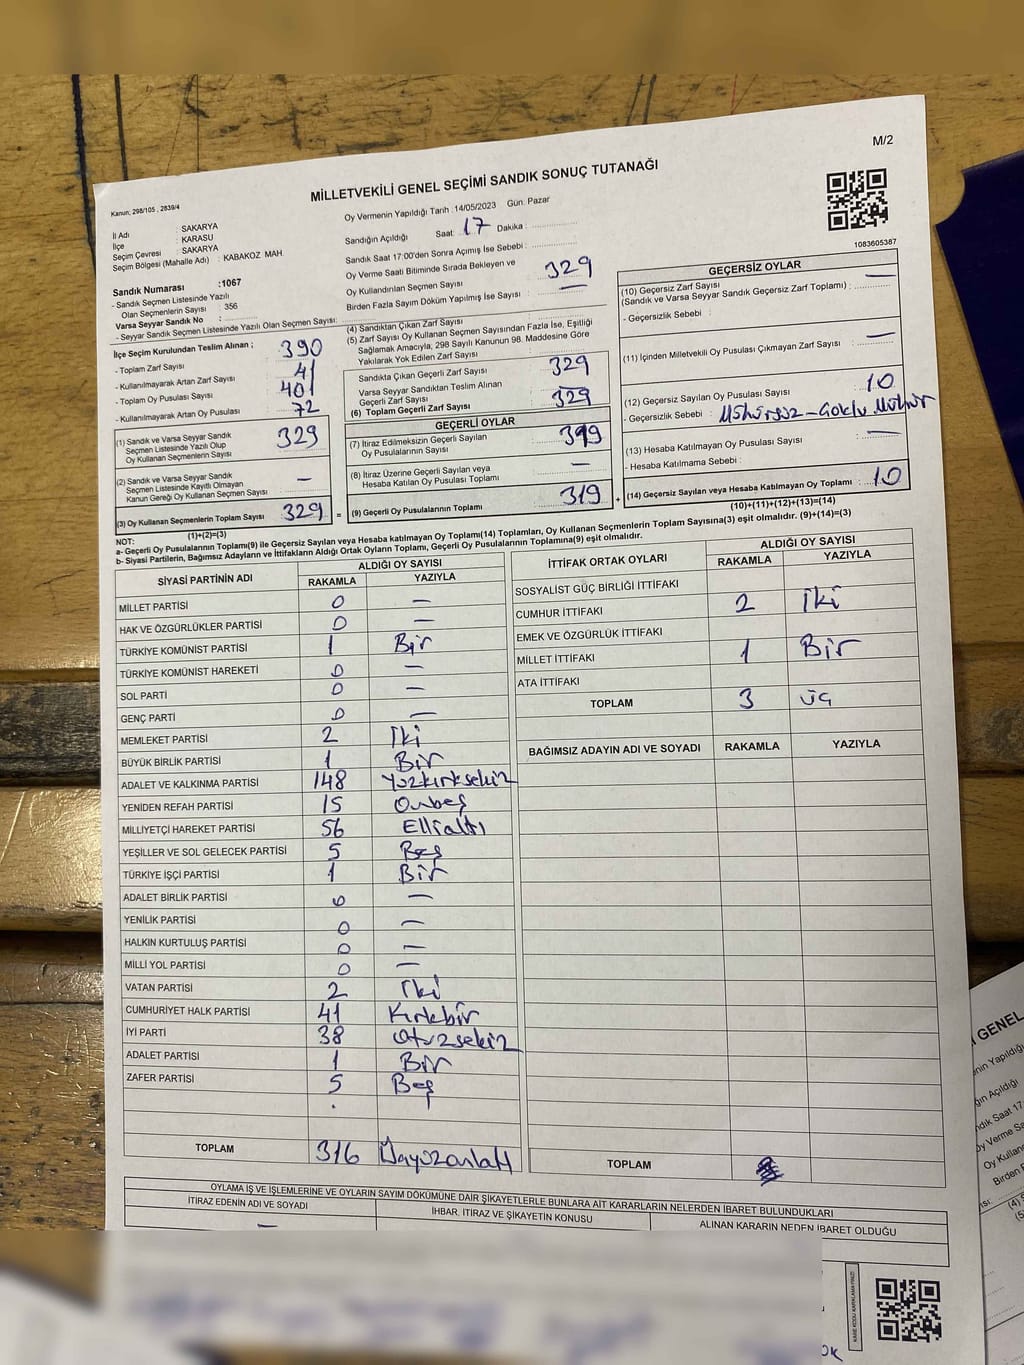 M/2
MİLLETVEKİLİ GENEL SEÇİMİ SANDIK SONUÇ TUTANAĞI
Kanun; 298/105 , 2839/4
İl Adı : SAKARYA
İlçe : KARASU
Seçim Çevresi : SAKARYA
Seçim Bölgesi (Mahalle Adı) : KABAKOZ MAH
Sandık Numarası :1067
- Sandık Seçmen Listesinde Yazılı
Olan Seçmenlerin Sayısı : 356
Varsa Seyyar Sandık No :
- Seyyar Sandık Seçmen Listesinde Yazılı Olan Seçmen Sayısı:
İlçe Seçim Kurulundan Teslim Alınan ;
- Toplam Zarf Sayısı : 390
- Kullanılmayarak Artan Zarf Sayısı : 41
- Toplam Oy Pusulası Sayısı : 401
- Kullanılmayarak Artan Oy Pusulası : 72
(1) Sandık ve Varsa Seyyar Sandık
Seçmen Listesinde Yazılı Olup
Oy Kullanan Seçmenlerin Sayısı 329
(2) Sandık ve Varsa Seyyar Sandık
Seçmen Listesinde Kayıtlı Olmayan
Kanun Gereği Oy Kullanan Seçmen Sayısı —
(3) Oy Kullanan Seçmenlerin Toplam Sayısı 329 =
(1)+(2)=(3)
Oy Vermenin Yapıldığı Tarih :14/05/2023 Gün. Pazar
Sandığın Açıldığı Saat: 17 Dakika :
Sandık Saat 17:00'den Sonra Açımış İse Sebebi :
Oy Verme Saati Bitiminde Sırada Bekleyen ve
Oy Kullandırılan Seçmen Sayısı : 329
Birden Fazla Sayım Döküm Yapılmış İse Sayısı : —
(4) Sandıktan Çıkan Zarf Sayısı
(5) Zarf Sayısı Oy Kullanan Seçmen Sayısından Fazla İse, Eşitliği
Sağlamak Amacıyla; 298 Sayılı Kanunun 98. Maddesine Göre
Yakılarak Yok Edilen Zarf Sayısı
Sandıkta Çıkan Geçerli Zarf Sayısı 329
Varsa Seyyar Sandıktan Teslim Alınan
Geçerli Zarf Sayısı
(6) Toplam Geçerli Zarf Sayısı 329
GEÇERLİ OYLAR
(7) İtiraz Edilmeksizin Geçerli Sayılan
Oy Pusulalarının Sayısı
(8) İtiraz Üzerine Geçerli Sayılan veya
Hesaba Katılan Oy Pusulası Toplamı —
(9) Geçerli Oy Pusulalarının Toplamı 319 +
1083605387
GEÇERSİZ OYLAR
(10) Geçersiz Zarf Sayısı —
(Sandık ve Varsa Seyyar Sandık Geçersiz Zarf Toplamı) :
- Geçersizlik Sebebi :
(11) İçinden Milletvekili Oy Pusulası Çıkmayan Zarf Sayısı —
(12) Geçersiz Sayılan Oy Pusulası Sayısı 10
- Geçersizlik Sebebi : Mühürsüz - Çoklu Mühür
(13) Hesaba Katılmayan Oy Pusulası Sayısı —
- Hesaba Katılmama Sebebi :
(14) Geçersiz Sayılan veya Hesaba Katılmayan Oy Toplamı : 10
(10)+(11)+(12)+(13)=(14)
NOT:
a- Geçerli Oy Pusulalarının Toplamı(9) ile Geçersiz Sayılan veya Hesaba katılmayan Oy Toplamı(14) Toplamları, Oy Kullanan Seçmenlerin Toplam Sayısına(3) eşit olmalıdır. (9)+(14)=(3)
b- Siyasi Partilerin, Bağımsız Adayların ve İttifakların Aldığı Ortak Oyların Toplamı, Geçerli Oy Pusulalarının Toplamına(9) eşit olmalıdır.
SİYASİ PARTİNİN ADI ALDIĞI OY SAYISI
RAKAMLA YAZIYLA
MİLLET PARTİSİ 0 —
HAK VE ÖZGÜRLÜKLER PARTİSİ 0 —
TÜRKİYE KOMÜNİST PARTİSİ 1 Bir
TÜRKİYE KOMÜNİST HAREKETİ 0 —
SOL PARTİ 0 —
GENÇ PARTİ 0 —
MEMLEKET PARTİSİ 2 İki
BÜYÜK BİRLİK PARTİSİ 1 Bir
ADALET VE KALKINMA PARTİSİ 148 Yüzkırksekiz
YENİDEN REFAH PARTİSİ 15 Onbeş
MİLLİYETÇİ HAREKET PARTİSİ 56 Ellialtı
YEŞİLLER VE SOL GELECEK PARTİSİ 5 Beş
TÜRKİYE İŞÇİ PARTİSİ 1 Bir
ADALET BİRLİK PARTİSİ 0 —
YENİLİK PARTİSİ 0 —
HALKIN KURTULUŞ PARTİSİ 0 —
MİLLİ YOL PARTİSİ 0 —
VATAN PARTİSİ 2 İki
CUMHURİYET HALK PARTİSİ 41 Kırkbir
İYİ PARTİ 38 Otuzsekiz
ADALET PARTİSİ 1 Bir
ZAFER PARTİSİ 5 Beş
TOPLAM 316 Üçyüzonaltı
İTTİFAK ORTAK OYLARI ALDIĞI OY SAYISI
RAKAMLA YAZIYLA
SOSYALIST GÜÇ BİRLİĞİ İTTİFAKI
CUMHUR İTTİFAKI 2 İki
EMEK VE ÖZGÜRLÜK İTTİFAKI
MİLLET İTTİFAKI 1 Bir
ATA İTTİFAKI
TOPLAM 3 üç
BAĞIMSIZ ADAYIN ADI VE SOYADI RAKAMLA YAZIYLA
TOPLAM
OYLAMA İŞ VE İŞLEMLERİNE VE OYLARIN SAYIM DÖKÜMÜNE DAİR ŞİKAYETLERLE BUNLARA AİT KARARLARIN NELERDEN İBARET BULUNDUKLARI
İTİRAZ EDENİN ADI VE SOYADI İHBAR, İTİRAZ VE ŞİKAYETİN KONUSU ALINAN KARARIN NEDEN İBARET OLDUĞU
—
İ GENEL
nin Yapıldığı
ğın Açıldığı
ndık Saat 17
Oy Verme Sa
Oy Kullan
Birden F